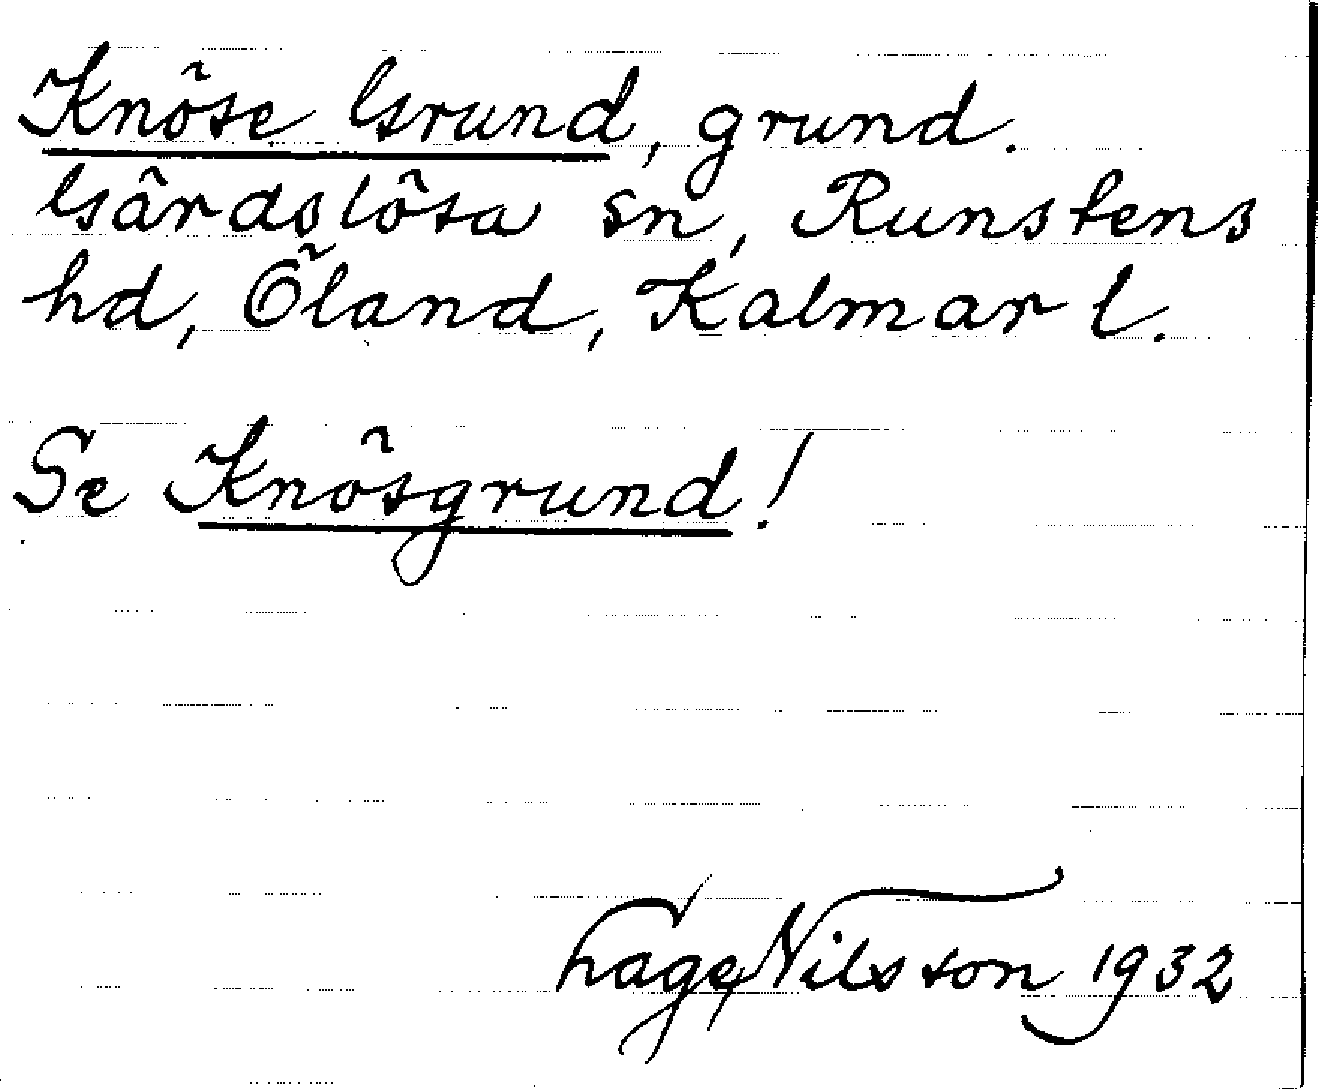 Knöse Grund, grund.
Gärdslösa sn, Runstens
hd, Öland, Kalmar l.
Se Knösgrund!
Hage Nilsson 1932